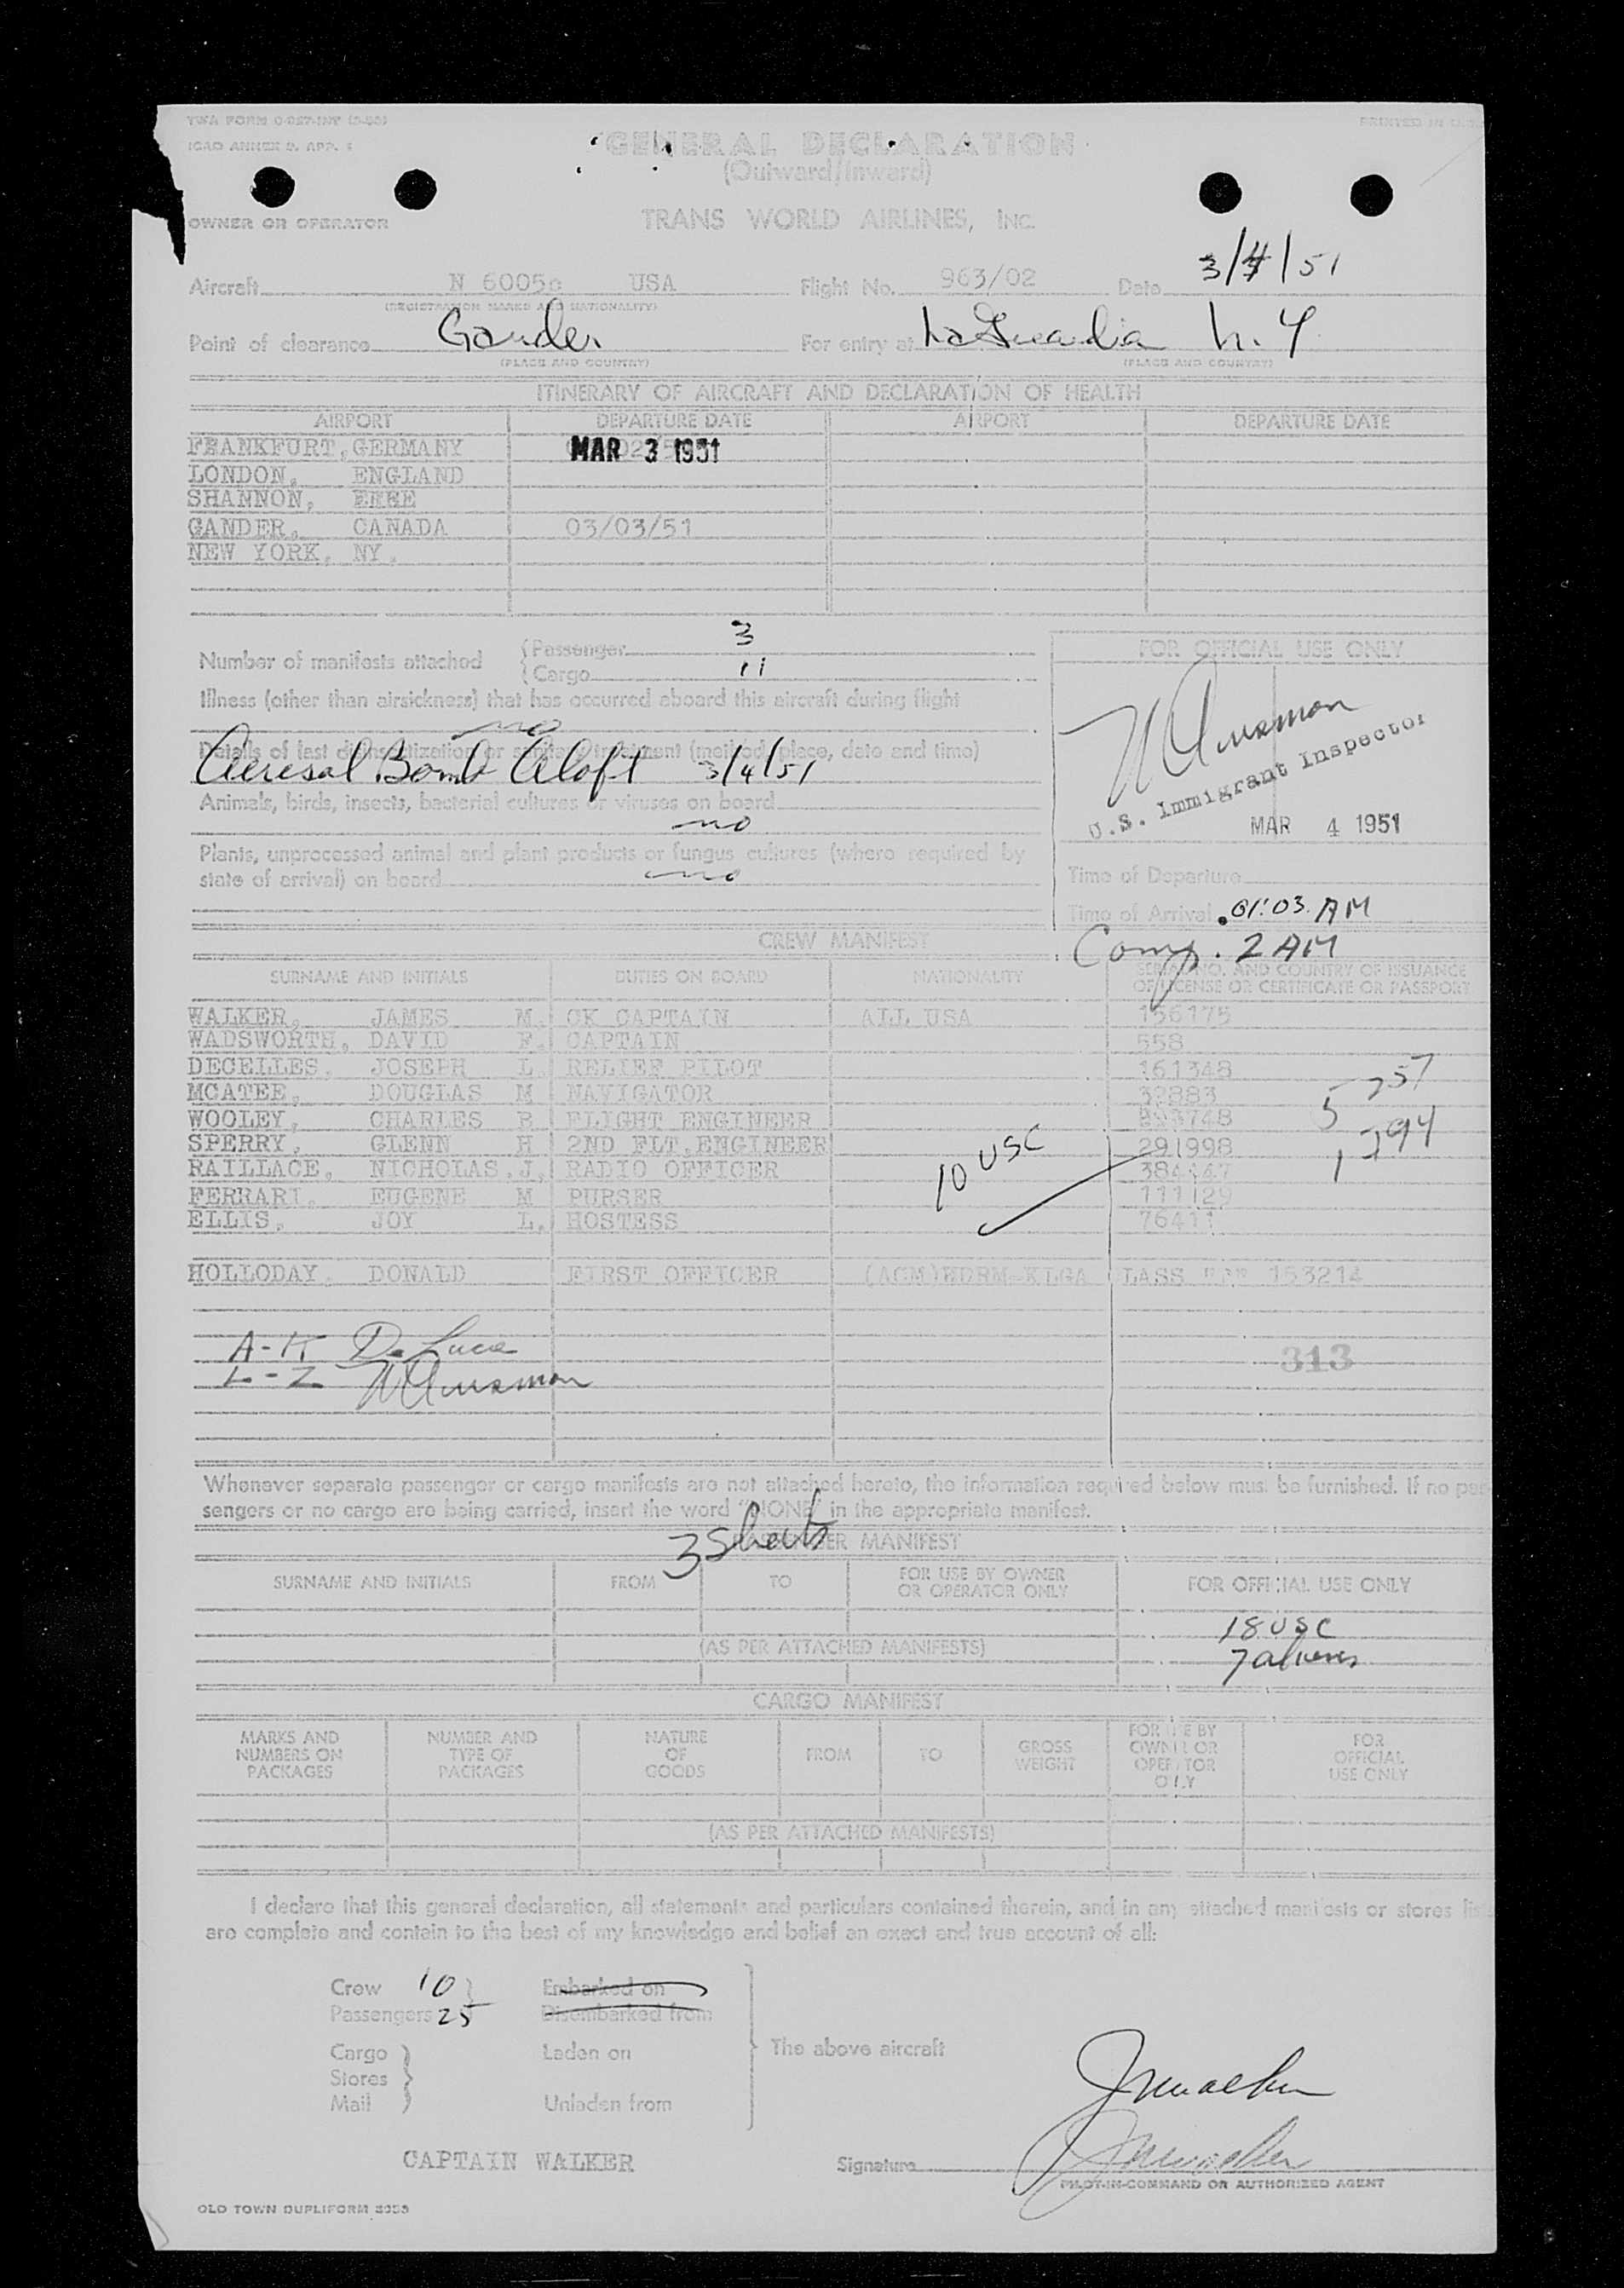 TWA FORM
ICAO ANNEX 9, APP. 1
PRINTED IN U.S.
GENERAL DECLARATION
(Outward/Inward)
OWNER OR OPERATOR TRANS WORLD AIRLINES, INC.
Aircraft N 6005 USA Flight No. 963/02 Date 3/4/51
(REGISTRATION MARKS AND NATIONALITY)
Point of clearance Gander For entry at LaGuardia N.Y.
(PLACE AND COUNTRY) (PLACE AND COUNTRY)
ITINERARY OF AIRCRAFT AND DECLARATION OF HEALTH
AIRPORT DEPARTURE DATE AIRPORT DEPARTURE DATE
FRANKFURT, GERMANY MAR 3 1951
LONDON, ENGLAND
SHANNON, EIRE
GANDER, CANADA 03/03/51
NEW YORK, NY.
Number of manifests attached { Passenger 3
{ Cargo 11
Illness (other than airsickness) that has occurred aboard this aircraft during flight
no
Details of last disinsectization or sanitary treatment (method, place, date and time)
Aeresal Bomb Aloft 3/4/51
Animals, birds, insects, bacterial cultures or viruses on board
no
Plants, unprocessed animal and plant products or fungus cultures (where required by
state of arrival) on board no
FOR OFFICIAL USE ONLY
U.S. Immigrant Inspector
MAR 4 1951
Time of Departure
Time of Arrival 01:03 AM
Comp. 2 AM
CREW MANIFEST
SURNAME AND INITIALS DUTIES ON BOARD NATIONALITY SERIAL NO. AND COUNTRY OF ISSUANCE
OF LICENSE OR CERTIFICATE OR PASSPORT
WALKER, JAMES M. CK CAPTAIN ALL USA 156175
WADSWORTH, DAVID F. CAPTAIN 558
DECELLES, JOSEPH L. RELIEF PILOT 161348
MCATEE, DOUGLAS M NAVIGATOR 32883
WOOLEY, CHARLES B FLIGHT ENGINEER
SPERRY, GLENN H 2ND FLT. ENGINEER 291998
RAILLACE, NICHOLAS. J. RADIO OFFICER
FERRARI, EUGENE M PURSER 111129
ELLIS, JOY L. HOSTESS 76411
10 USC
HOLLODAY, DONALD FIRST OFFICER (ACM)EDRM-KLGA LASS 153214
A-K DeLuca
L-Z
313
Whenever separate passenger or cargo manifests are not attached hereto, the information required below must be furnished. If no pas
sengers or no cargo are being carried, insert the word "NONE" in the appropriate manifest.
3 Sheets
PASSENGER MANIFEST
SURNAME AND INITIALS FROM TO FOR USE BY OWNER
OR OPERATOR ONLY FOR OFFICIAL USE ONLY
18 USC
(AS PER ATTACHED MANIFESTS)
7 aliens
CARGO MANIFEST
MARKS AND
NUMBERS ON
PACKAGES
NUMBER AND
TYPE OF
PACKAGES
NATURE
OF
GOODS
FROM
TO
GROSS
WEIGHT
FOR USE BY
OWNER OR
OPERATOR
ONLY
FOR
OFFICIAL
USE ONLY
(AS PER ATTACHED MANIFESTS)
I declare that this general declaration, all statements and particulars contained therein, and in any attached manifests or stores lis
are complete and contain to the best of my knowledge and belief an exact and true account of all:
Crew 10 Embarked on
Passengers 25 Disembarked from
Cargo Laden on The above aircraft
Stores
Mail Unladen from
JMWalker
CAPTAIN WALKER Signature JMWalker
PILOT-IN-COMMAND OR AUTHORIZED AGENT
OLD TOWN DUPLIFORM